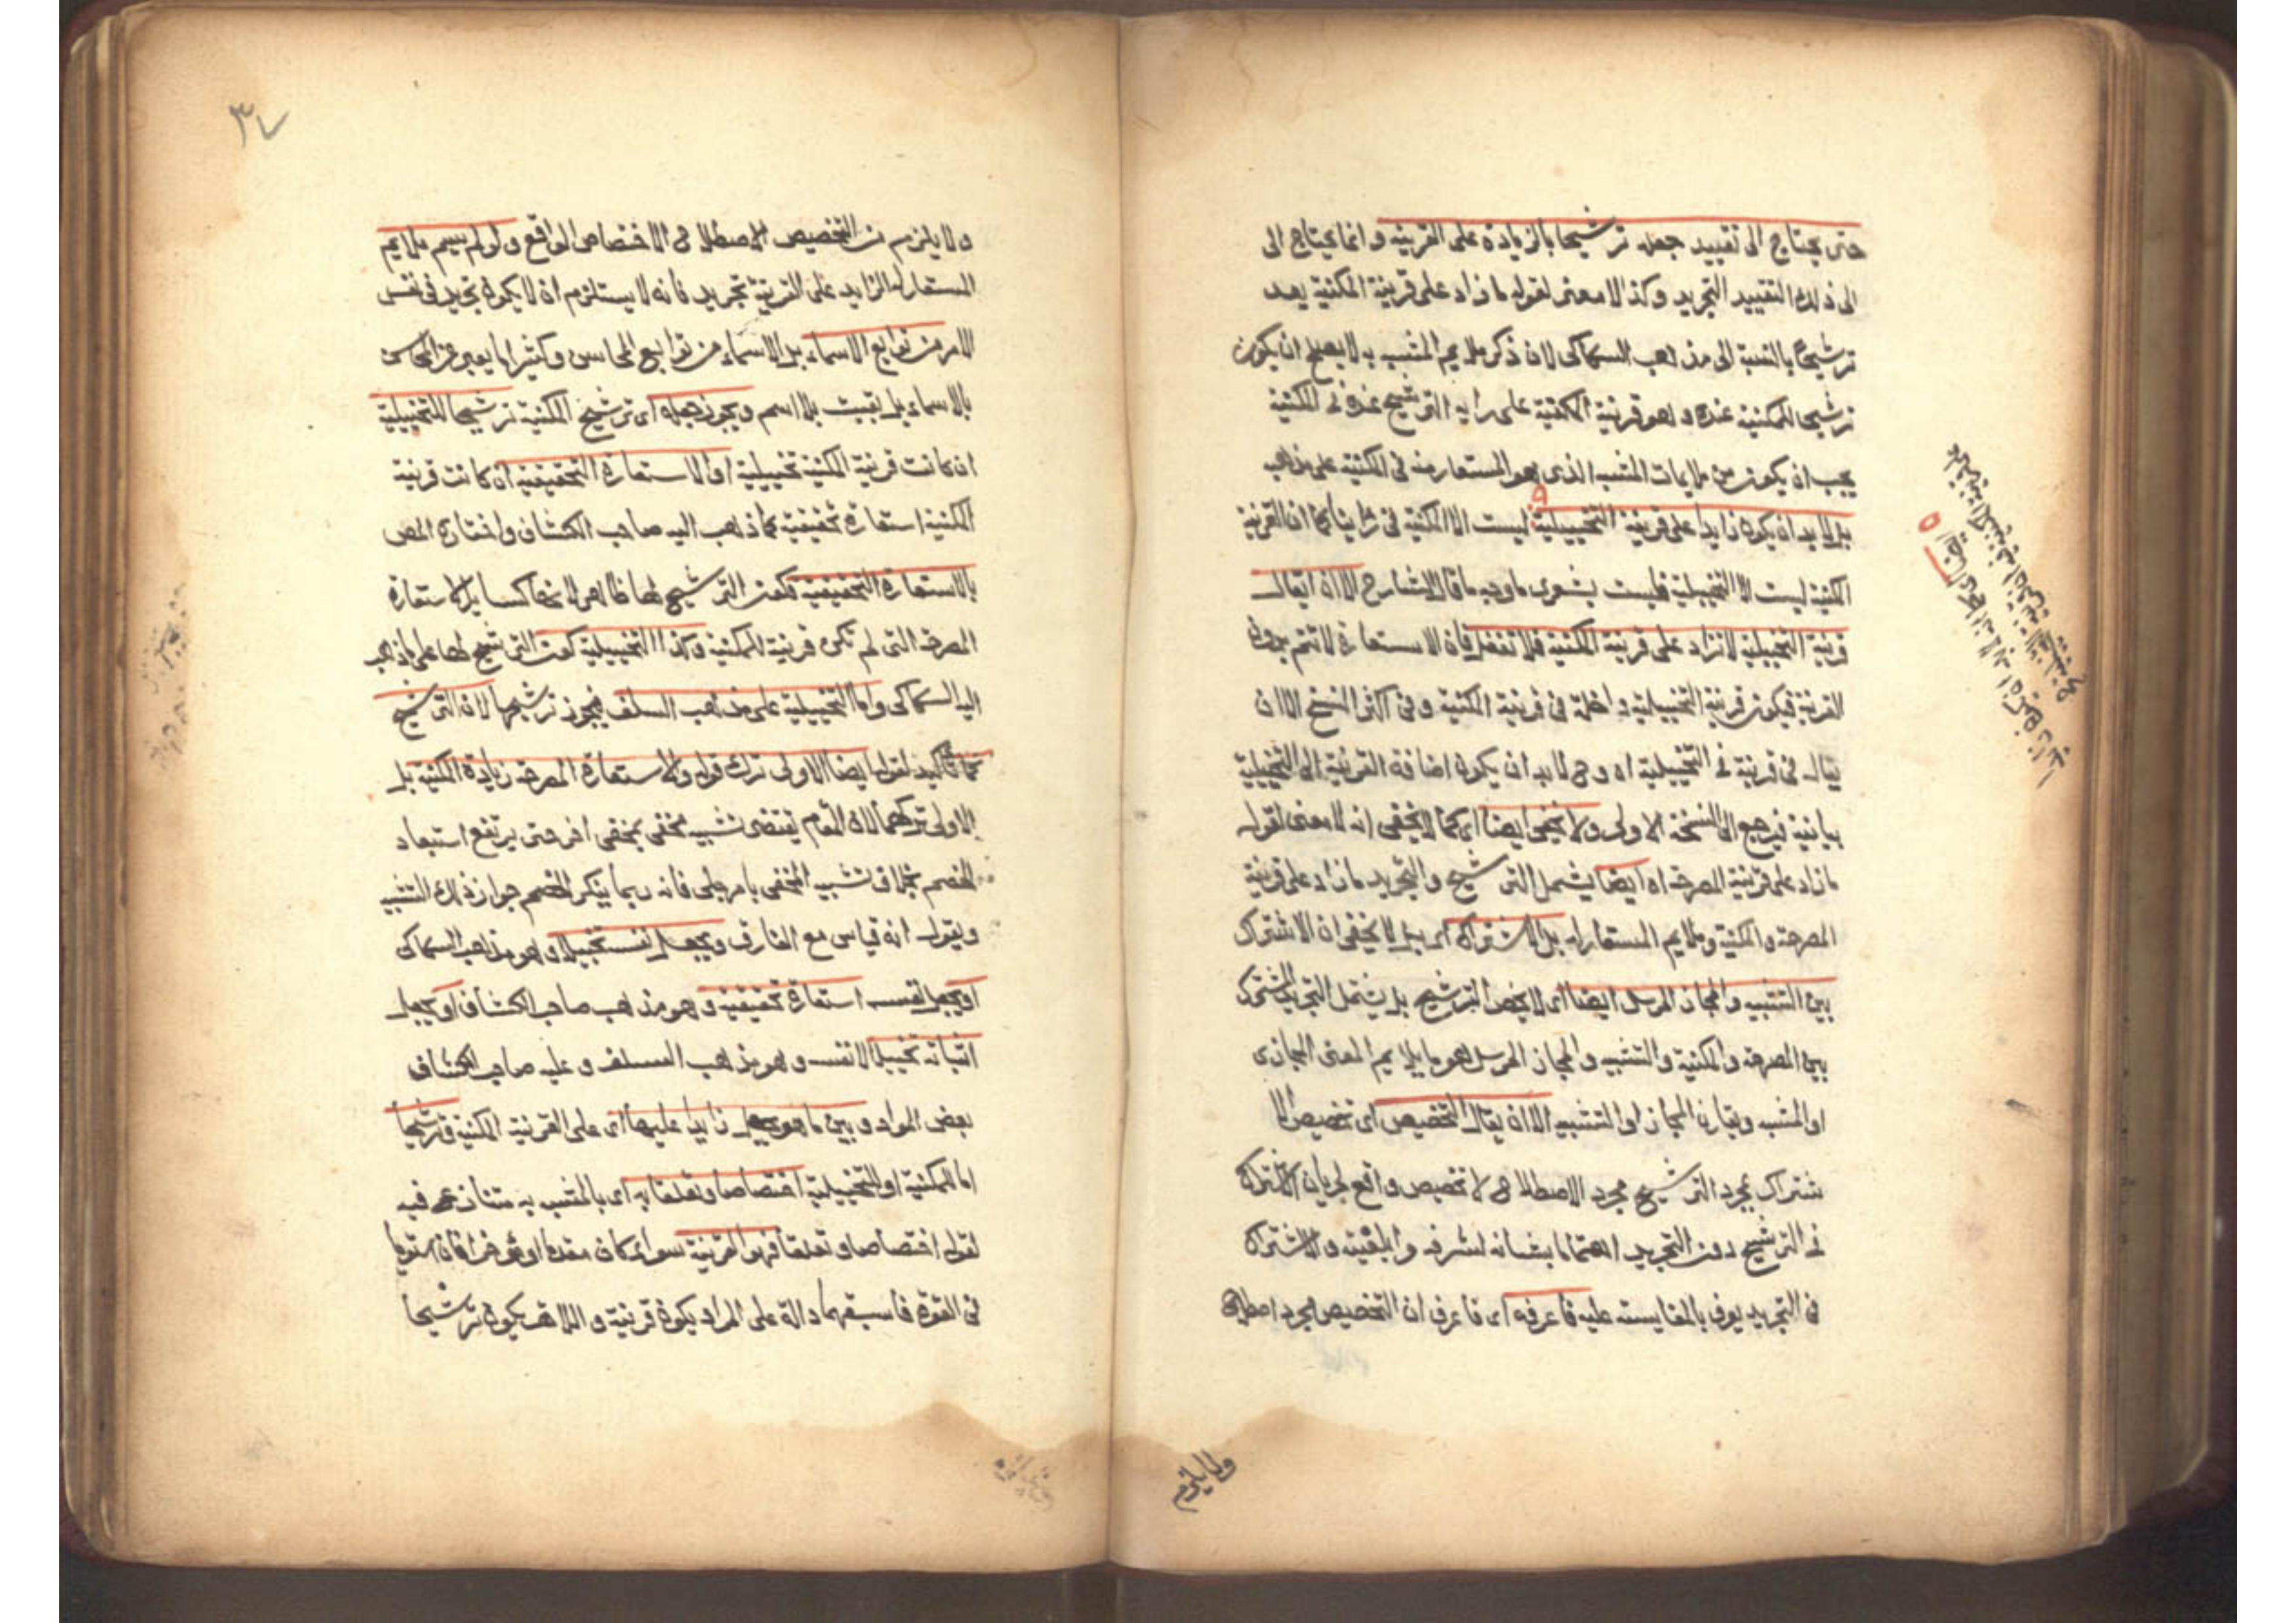 حتى يحتاج الى تقييد جعله ترشيحا بالزيادة على القرينة وانما يحتاج الى
الى ذلك التقييد التجريد وكذا لا معنى لقوله ما زاد على قرينة المكنية يعد
ترشيحا بالنسبة الى مذهب السكاكى لان ذكر ملايم المشبه به لا يصلح ان يكون
ترشيحا للمكنية عنده وهو قرينة المكنية على رايه الترشيح عنده فى المكنية
يجب ان يكون من ملايمات المشبه الذى هو المستعار منه فى المكنية على مذهب
بل لا بد ان يكون زايدا على قرينة التخييلية ليست الا المكنية فى كما ان القرينة
المكنية ليست الا التخييلية فليت شعرى ما وجه ما قال الشارح الا ان يقال
قرينة التخييلية لا تزاد على قرينة المكنية فلا تغفل فان الاستعارة لا تتم بدون
القرينة فيكون قرينة التخييلية داخلة فى قرينة المكنية وفى اكثر النسخ الا ان
يقال فى قرينة فى التخييلية اه وح لا بد ان يكون اضافة القرينة الى التخييلية
بيانية فيرجع الى النسخة الاولى ولا يخفى ايضا اى كما لا يخفى انه لا معنى لقوله
ما زاد على قرينة المصرحة اه ايضا يشمل الترشيح والتجريد ما زاد على قرينة
المصرحة والمكنية وملايم المستعار له بل الاشتراك اى بل لا يخفى ان الاشتراك
بين التشبيه والمجاز المرسل ايضا اى لا يخص الترشيح بل يشمل التجريد المشترك
بين المصرحة والمكنية والتشبيه والمجاز المرسل هو ما يلايم المعنى المجازى
او المشبه ويقارن المجاز او التشبيه الا ان يقال التخصيص اى تخصيص الا
شتراك بمجرد الترشيح مجرد الاصطلاح لا تخصيص واقع لجريان الاشتراك
فى الترشيح دون التجريد اهتماما بشانه لشرفه وابلغيته والاشتراك
فى التجريد يعرف بالمقايسة عليه فاعرفه اى فاعرف ان التخصيص لمجرد اصطلاح
ولا يلزم
٣٧
ولا يلزم من التخصيص الاصطلاحى الاختصاص الواقع ولو لم يسم ملايم
المستعار له الزايد على القرينة تجريد فانه لا يستلزم ان لا يكون تجريد فى نفس
الامر من توابع الاسماء بل الاسماء من توابع المحاسن وكثيرا ما يعبر عن المحاسن
بالاسماء بل بقيت بلا اسم ويجوز جعله اى ترشيح المكنية ترشيحا للتخييلية
ان كانت قرينة المكنية تخييلية او الاستعارة التحقيقية ان كانت قرينة
المكنية استعارة تحقيقية كما ذهب اليه صاحب الكشاف واختاره المص
بالاستعارة التحقيقية فكون الترشيح لها ظاهر لانها كساير الاستعارة
المصرحة التى لم تكن قرينة للمكنية وكذا التخييلية كون الترشيح لها على ما ذهب
اليه السكاكى واما التخييلية على مذهب السلف فيجوز ترشيحها لان الترشيح
تاكيد لقوله ايضا الاولى ترك قوله والاستعارة المصرحة زيادة المكنية بل
الاولى تركهما لان المقام يقتضى تشبيه مخفى بمخفى اخر حتى يرتفع استبعاد
الخصم بخلاف تشبيه المخفى بامر جلى فانه ربما ينكر الخصم جواز ذلك التشبيه
ويقول انه قياس مع الفارق ويجعل نفسه تخييلا وهو مذهب السكاكى
او يجعل نفسه استعارة تحقيقية وهو مذهب صاحب الكشاف او يجعل
اثباته تخييلا لا نفسه وهو مذهب السلف وعليه صاحب الكشاف
بعض المواد وبين ما هو يجعل زايدا عليها اى على القرينة المكنية وترشيحا
اما للمكنية او التخييلية اختصاصا وتعلقا به اى بالمشبه به متنازع فيه
لقوله اختصاصا وتعلقا فهو القرينة سواء كان مقدما او مؤخرا فان استويا
فى القوة فاسبقهما دالة على المراد يكون قرينة واللاحق يكون ترشيحا